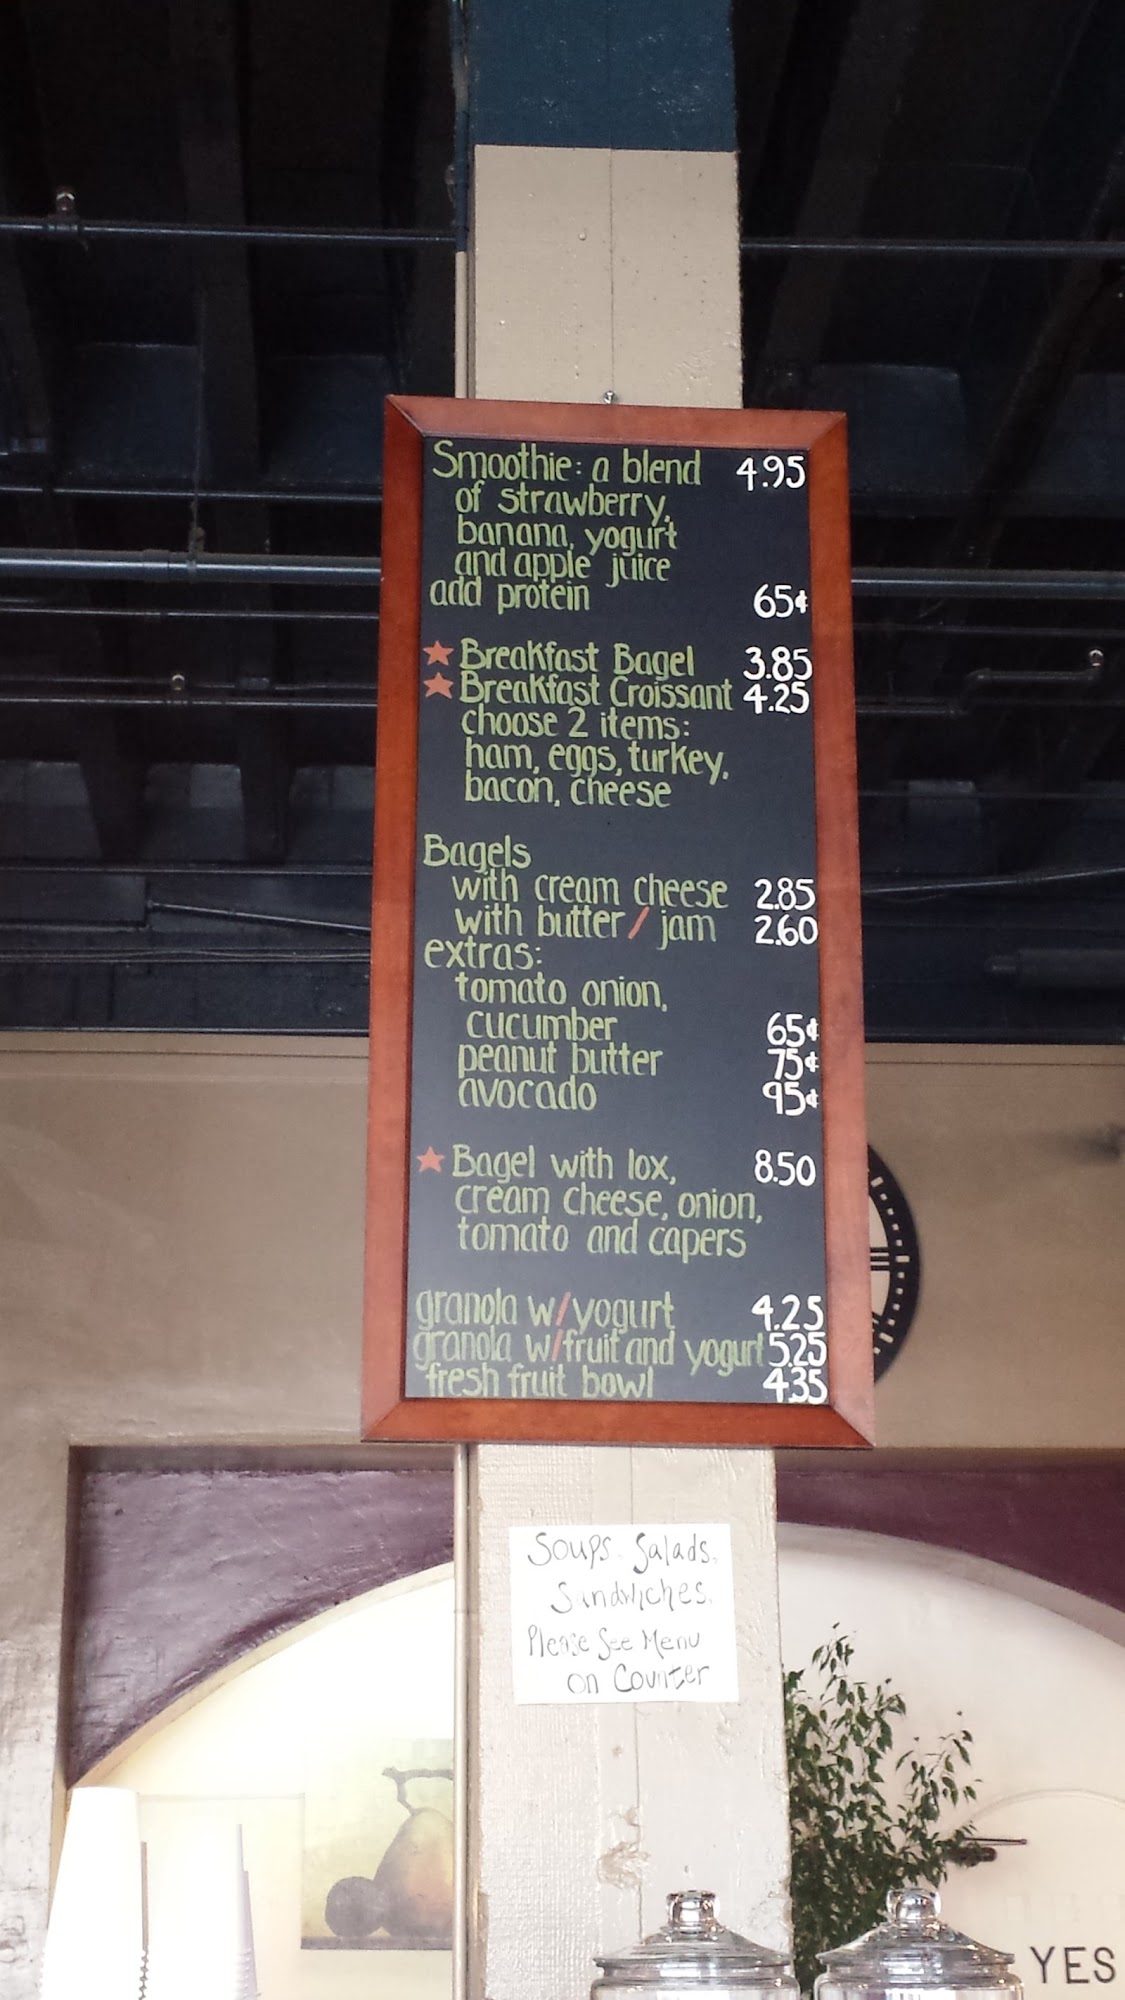 Smoothie: a blend 4.95
of strawberry,
banana, yogurt
and apple juice
add protein 65¢
★ Breakfast Bagel 3.85
★ Breakfast Croissant 4.25
choose 2 items:
ham, eggs, turkey,
bacon, cheese
Bagels
with cream cheese 2.85
with butter / jam 2.60
extras:
tomato onion,
cucumber 65¢
peanut butter 75¢
avocado 95¢
★ Bagel with lox, 8.50
cream cheese, onion,
tomato and capers
granola w/yogurt 4.25
granola w/fruit and yogurt 5.25
fresh fruit bowl 4.35
Soups. Salads.
Sandwiches.
Please See Menu
on Counter
YES